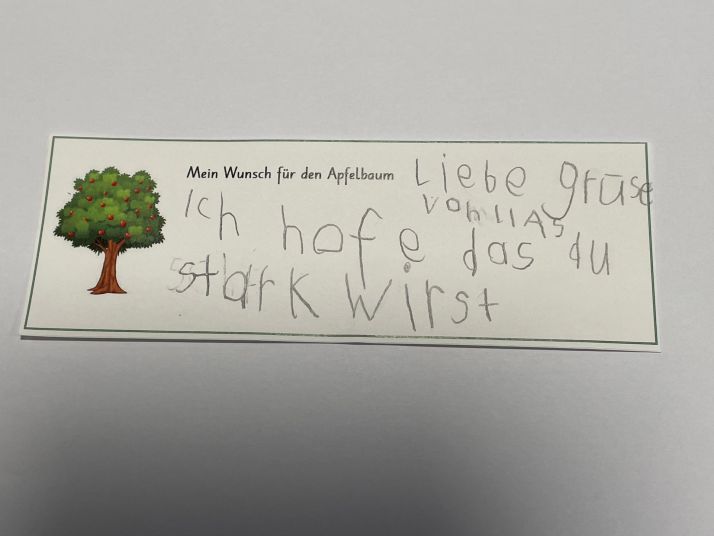 Mein Wunsch für den Apfelbaum
Liebe grüse
von lIAS
Ich hofe das du
stark wirst